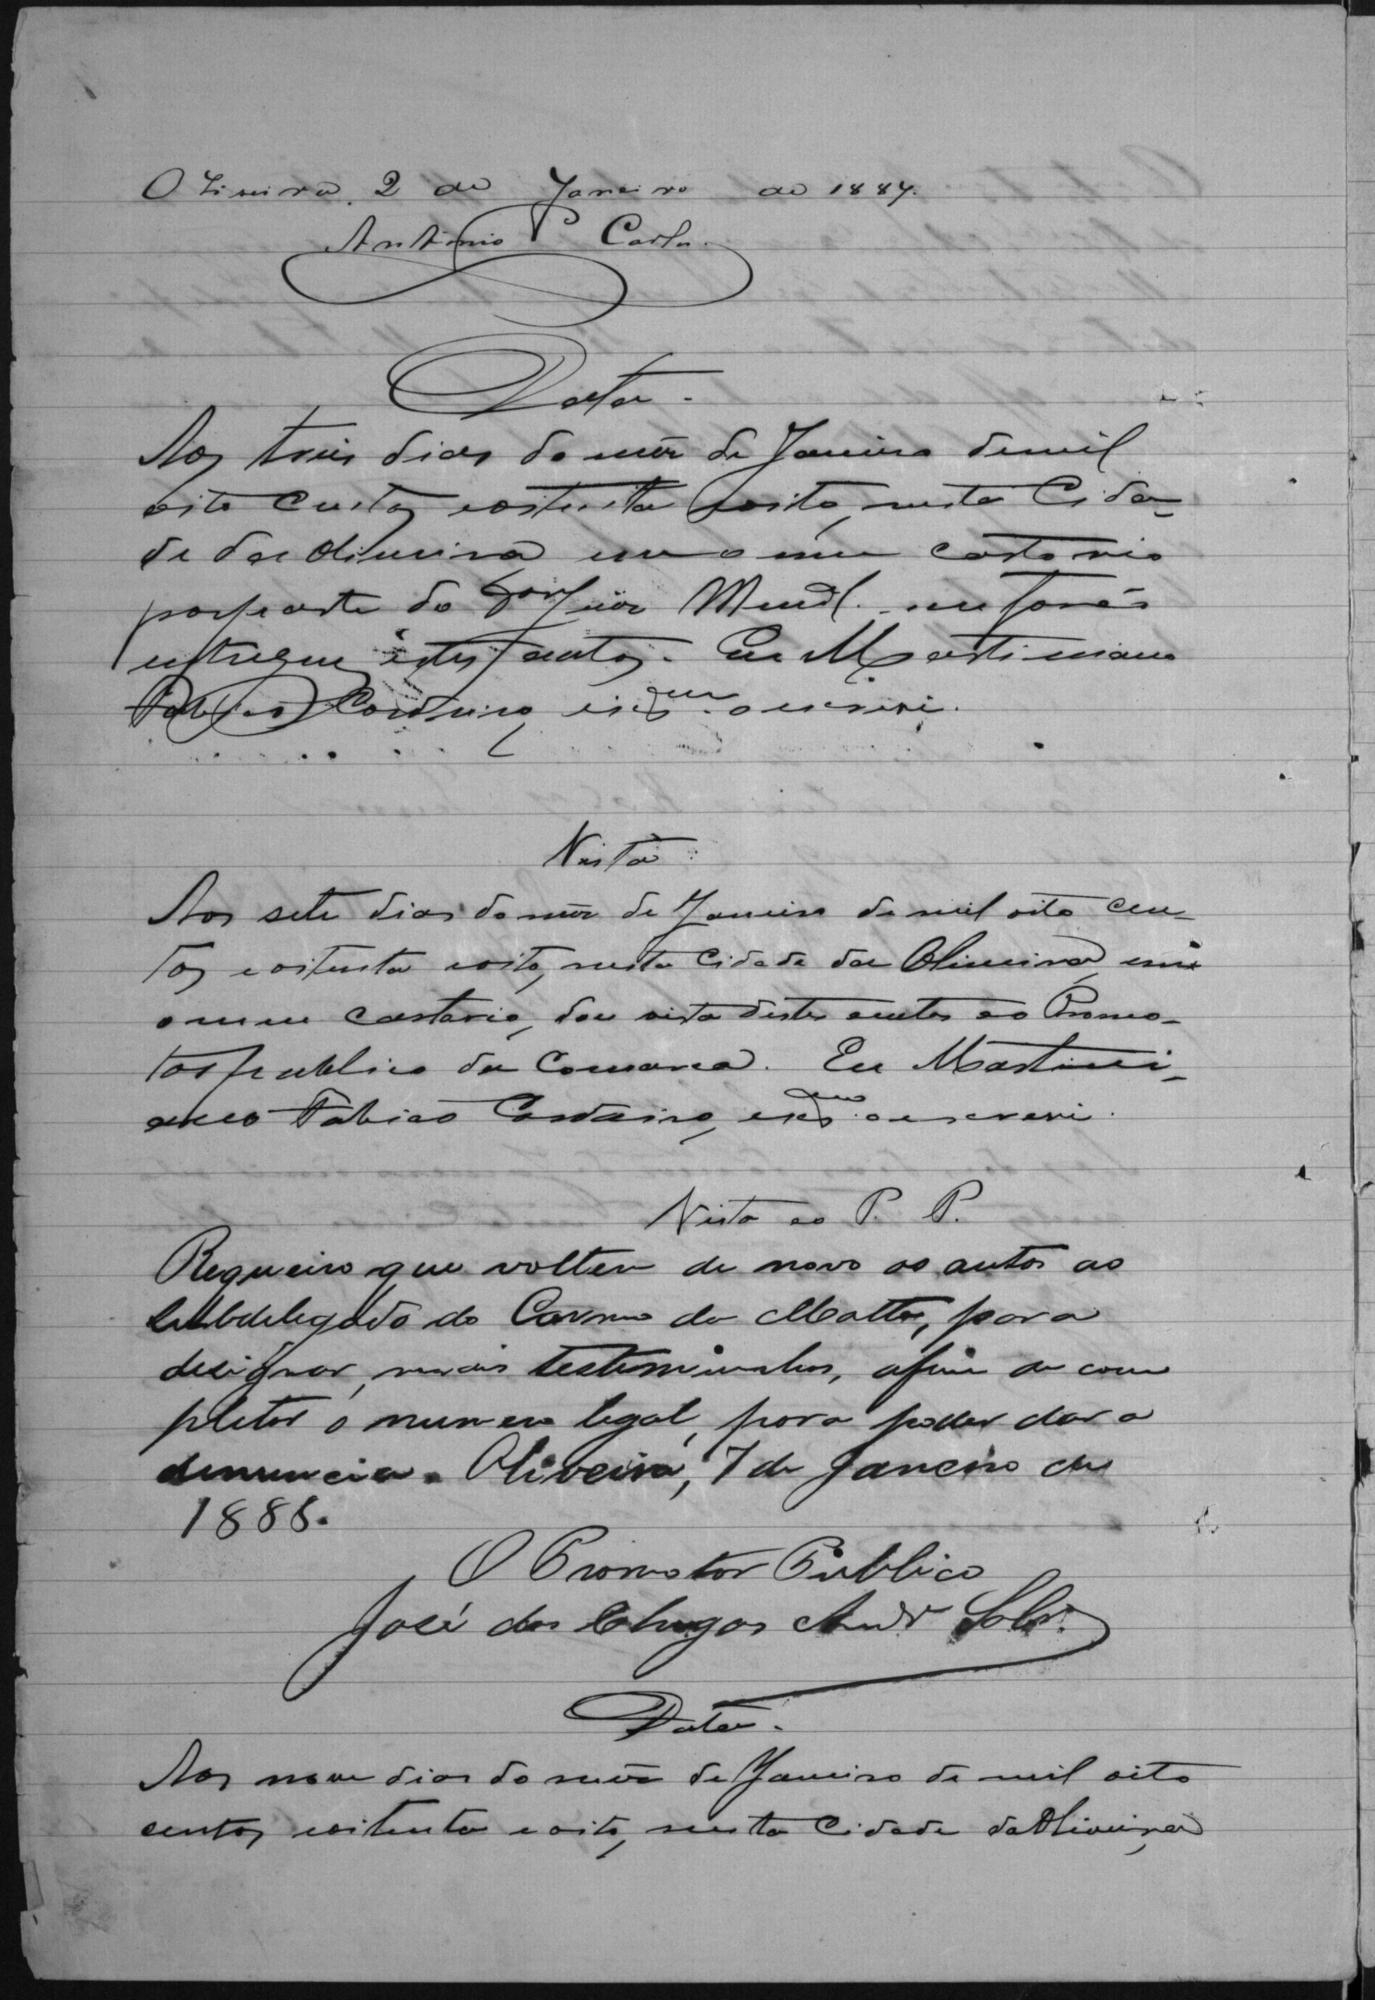 Oliveira, 2 de Janeiro de 1887.
Antonio Carlos
Data.
Aos treis dias do mês de Janeiro de mil
oito centos eoitenta eoito, nesta Cida-
de da Oliveira em o meu cartorio
por parte do Juiz Mun.al me forão
entregues estes autos. Eu Martiniano
Fabião Cordeiro, escr.am o escrevi.
Vista
Aos sete dias do mês de Janeiro de mil oito cen-
tos eoitenta eoito, nesta Cidade da Oliveira, em
o meu cartorio, dou vista destes autos ao Promo-
tor publico da Comarca. Eu Martini-
ano Fabião Cordeiro, escr.am o escrevi.
Vista ao P. P.
Requeiro que voltem de novo os autos ao
Subdelegado do Carmo da Matta, para
designar, mais testiminhas, afim de com
pletar o numero legal, para poder dar a
denuncia. Oliveira, 7 de Janeiro de
1888.
O Promotor Publico
José das Chagas And.e Sobr.
Data.
Aos nove dias do mês de Janeiro de mil oito
centos eoitenta e oito, nesta Cidade da Oliveira